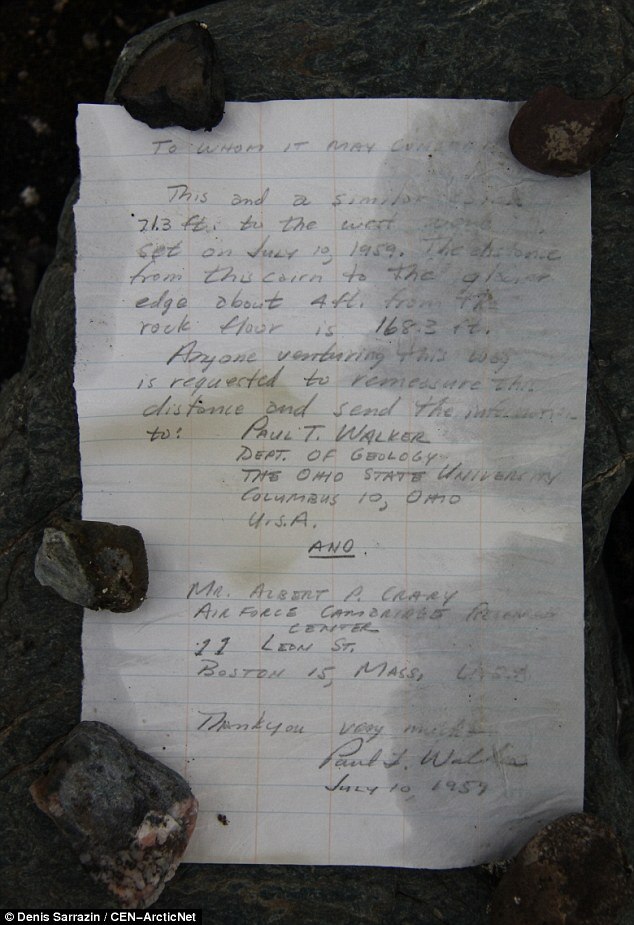 TO WHOM IT MAY CONCERN
This and a similar
71.3 ft. to the west were
set on July 10, 1959. The distance
from this cairn to the glacier
edge about 4 ft. from the
rock floor is 168.3 ft.
Anyone venturing this way
is requested to remeasure this
distance and send the information
to: PAUL T. WALKER
DEPT. OF GEOLOGY
THE OHIO STATE UNIVERSITY
COLUMBUS 10, OHIO
U.S.A.
AND
MR. ALBERT P. CRARY
AIR FORCE CAMBRIDGE RESEARCH
CENTER
11 LEON ST.
BOSTON 15, MASS. U.S.A.
Thankyou very much
Paul T. Walker
JULY 10, 1959
© Denis Sarrazin / CEN-ArcticNet